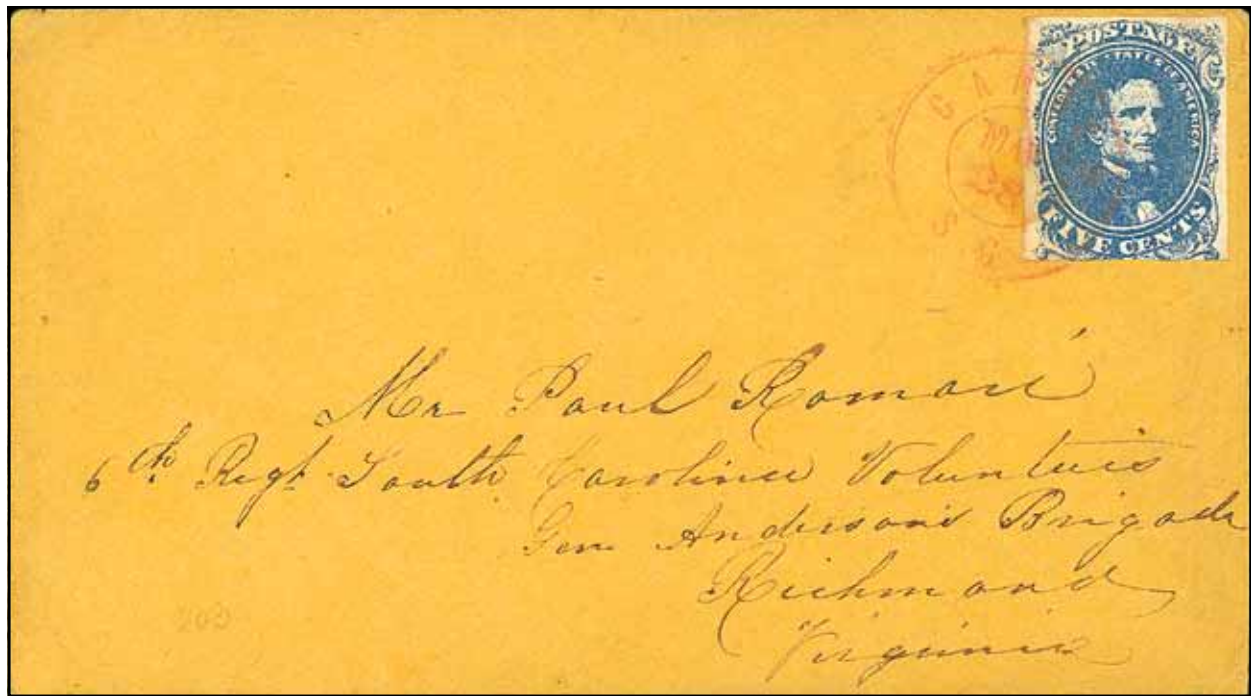 POSTAGE
CONFEDERATE STATES OF AMERICA
FIVE CENTS
CAM
S C
Mr Paul Romaré
6th Regt South Carolina Volunteers
Gen Anderson's Brigade
Richmond
Virginia